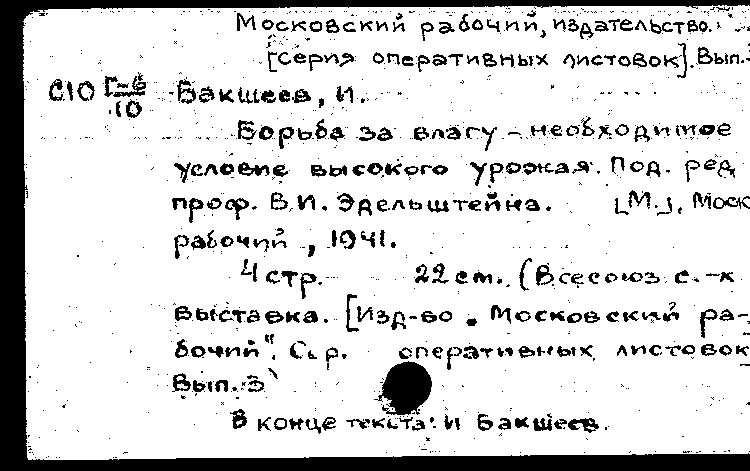 Московский рабочий, издательство.
[Серия оперативных листовок]. Вып.3
С10 Г-6/10 Бакшеев, И.
Борьба за влагу - необходимое
условие высокого урожая. Под. ред.
проф. В.И. Эдельштейна. [М.], Моск
рабочий, 1941.
4 стр. 22 см. (Всесоюз с.-х
выставка. [Изд-во. Московский ра-
бочий". Сер. оперативных листовок
Вып. 3
В конце текста: И Бакшеев.